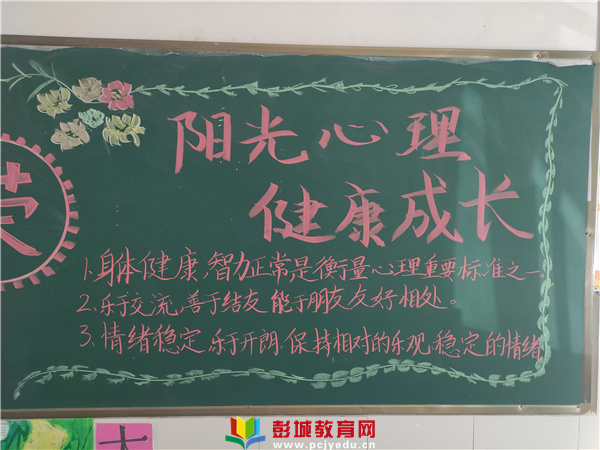 阳光心理
健康成长
1、身体健康,智力正常是衡量心理重要标准之一。
2、乐于交流,善于结友 能于朋友友好相处。
3、情绪稳定 乐于开朗.保持相对的乐观、稳定的情绪
彭城教育网
www.pcjyedu.cn